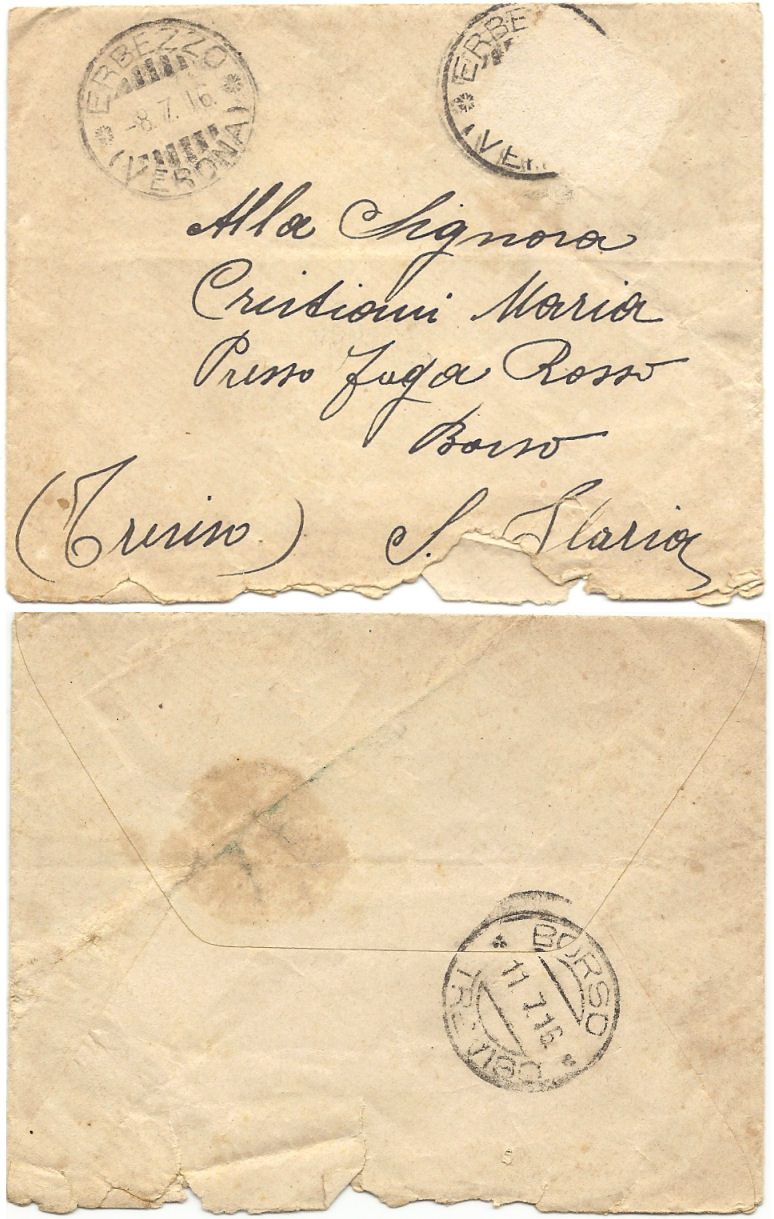 ERBEZZO
-8.7.16
(VERONA)
ERBE
(VER
Alla Signora
Cristiani Maria
Presso Fuga Rosso
Borso
(Treviso) S. Ilaria
BORSO
11.7.16
TREVISO